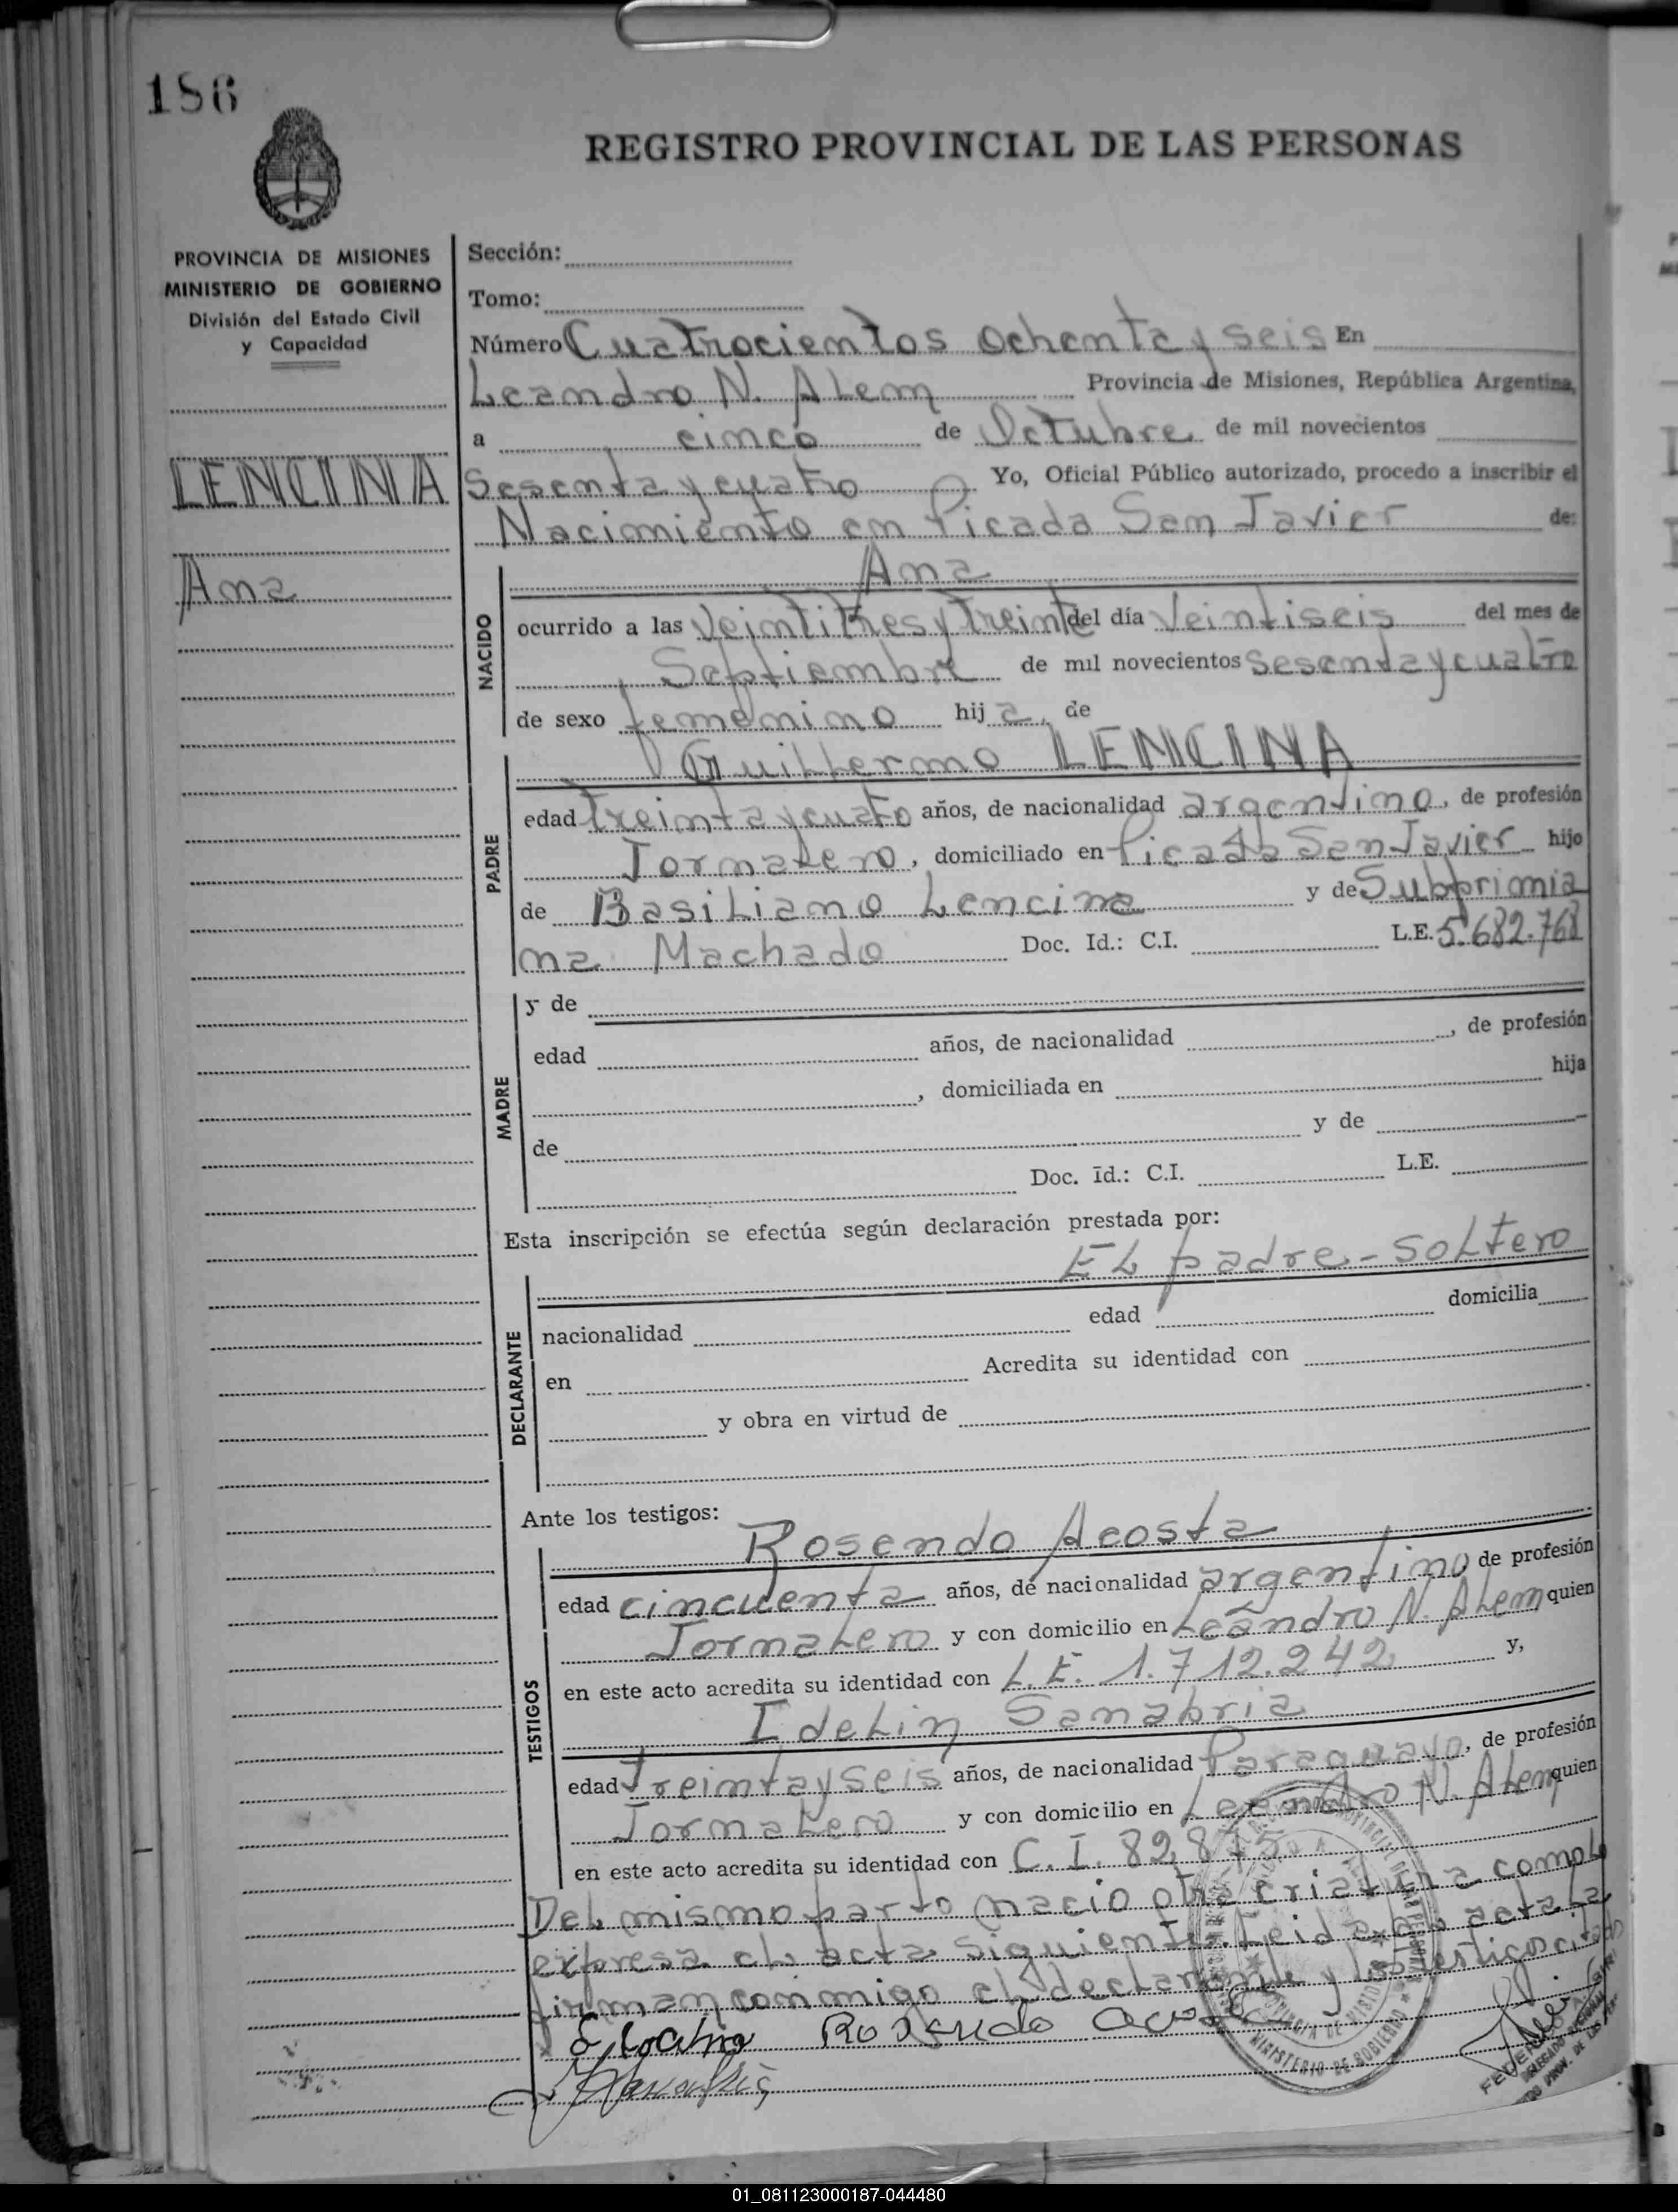 186
REGISTRO PROVINCIAL DE LAS PERSONAS
PROVINCIA DE MISIONES
MINISTERIO DE GOBIERNO
División del Estado Civil
y Capacidad
LENCINA
Ana
Sección:
Tomo:
Número Cuatrocientos ochenta y seis En
Leandro N. Alem Provincia de Misiones, República Argentina,
a cinco de Octubre de mil novecientos
Sesenta y cuatro Yo, Oficial Público autorizado, procedo a inscribir el
Nacimiento en Picada San Javier de:
NACIDO
Ana
ocurrido a las Veintitres y treinta del día Veintiseis del mes de
Septiembre de mil novecientos sesenta y cuatro
de sexo femenino hija, de
PADRE
Guillermo LENCINA
edad treinta y cuatro años, de nacionalidad argentino, de profesión
Jornalero, domiciliado en Picada San Javier hijo
de Basiliano Lencina y de Subprimia
na Machado Doc. Id.: C.I. L.E. 5.682.768
MADRE
y de
edad años, de nacionalidad , de profesión
, domiciliada en hija
de y de
Doc. Id.: C.I. L.E.
Esta inscripción se efectúa según declaración prestada por:
El padre - soltero
DECLARANTE
nacionalidad edad domicilia
en Acredita su identidad con
y obra en virtud de
Ante los testigos:
TESTIGOS
Rosendo Acosta
edad cincuenta años, de nacionalidad argentino de profesión
Jornalero y con domicilio en Leandro N. Alem quien
en este acto acredita su identidad con L.E. 1.712.242 y,
Idelin Sanabria
edad treinta y seis años, de nacionalidad Paraguayo, de profesión
Jornalero y con domicilio en Leandro N. Alem quien
en este acto acredita su identidad con C.I. 82.875
Del mismo parto nacio otra criatura como lo
expresa el acta siguiente. Leida el acta la
firman conmigo el declarante y los testigos citados
Rosendo Acosta
MINISTERIO DE GOBIERNO
01_081123000187-044480